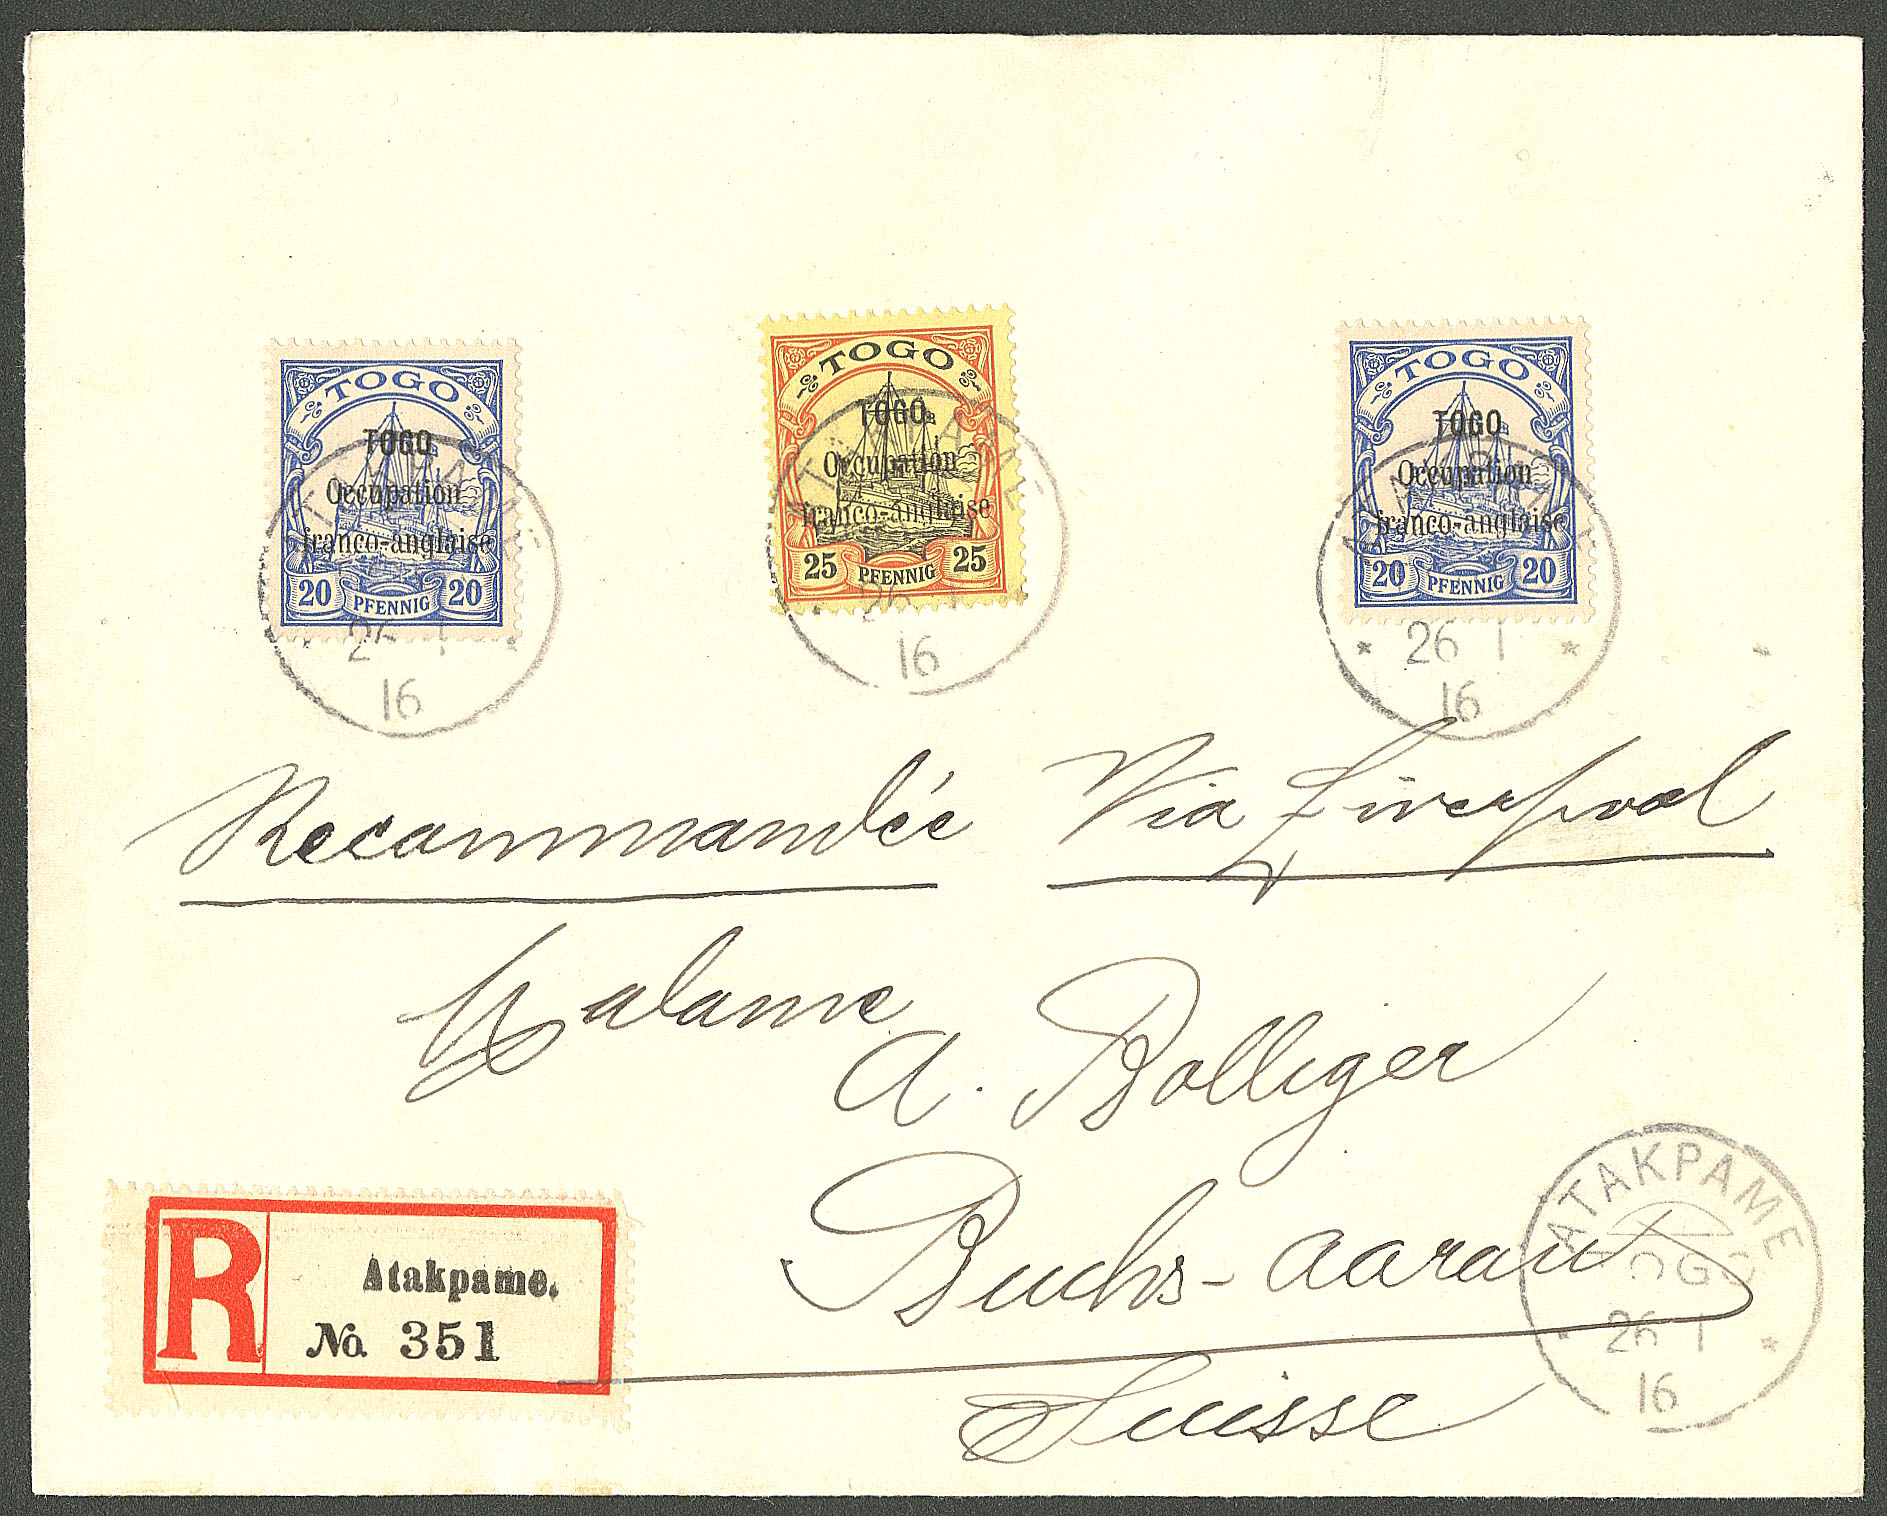 TOGO
TOGO
Occupation
franco-anglaise
20 PFENNIG 20
TOGO
TOGO
Occupation
franco-anglaise
25 PFENNIG 25
TOGO
TOGO
Occupation
franco-anglaise
20 PFENNIG 20
ATAKPAME
26 1
16
ATAKPAME
26 1
16
ATAKPAME
* 26 1 *
16
Recommandée Via Liverpool
Madame
A. Bolliger
Buchs-Aarau
Suisse
R
Atakpame.
No. 351
ATAKPAME
TOGO
* 26 1 *
16